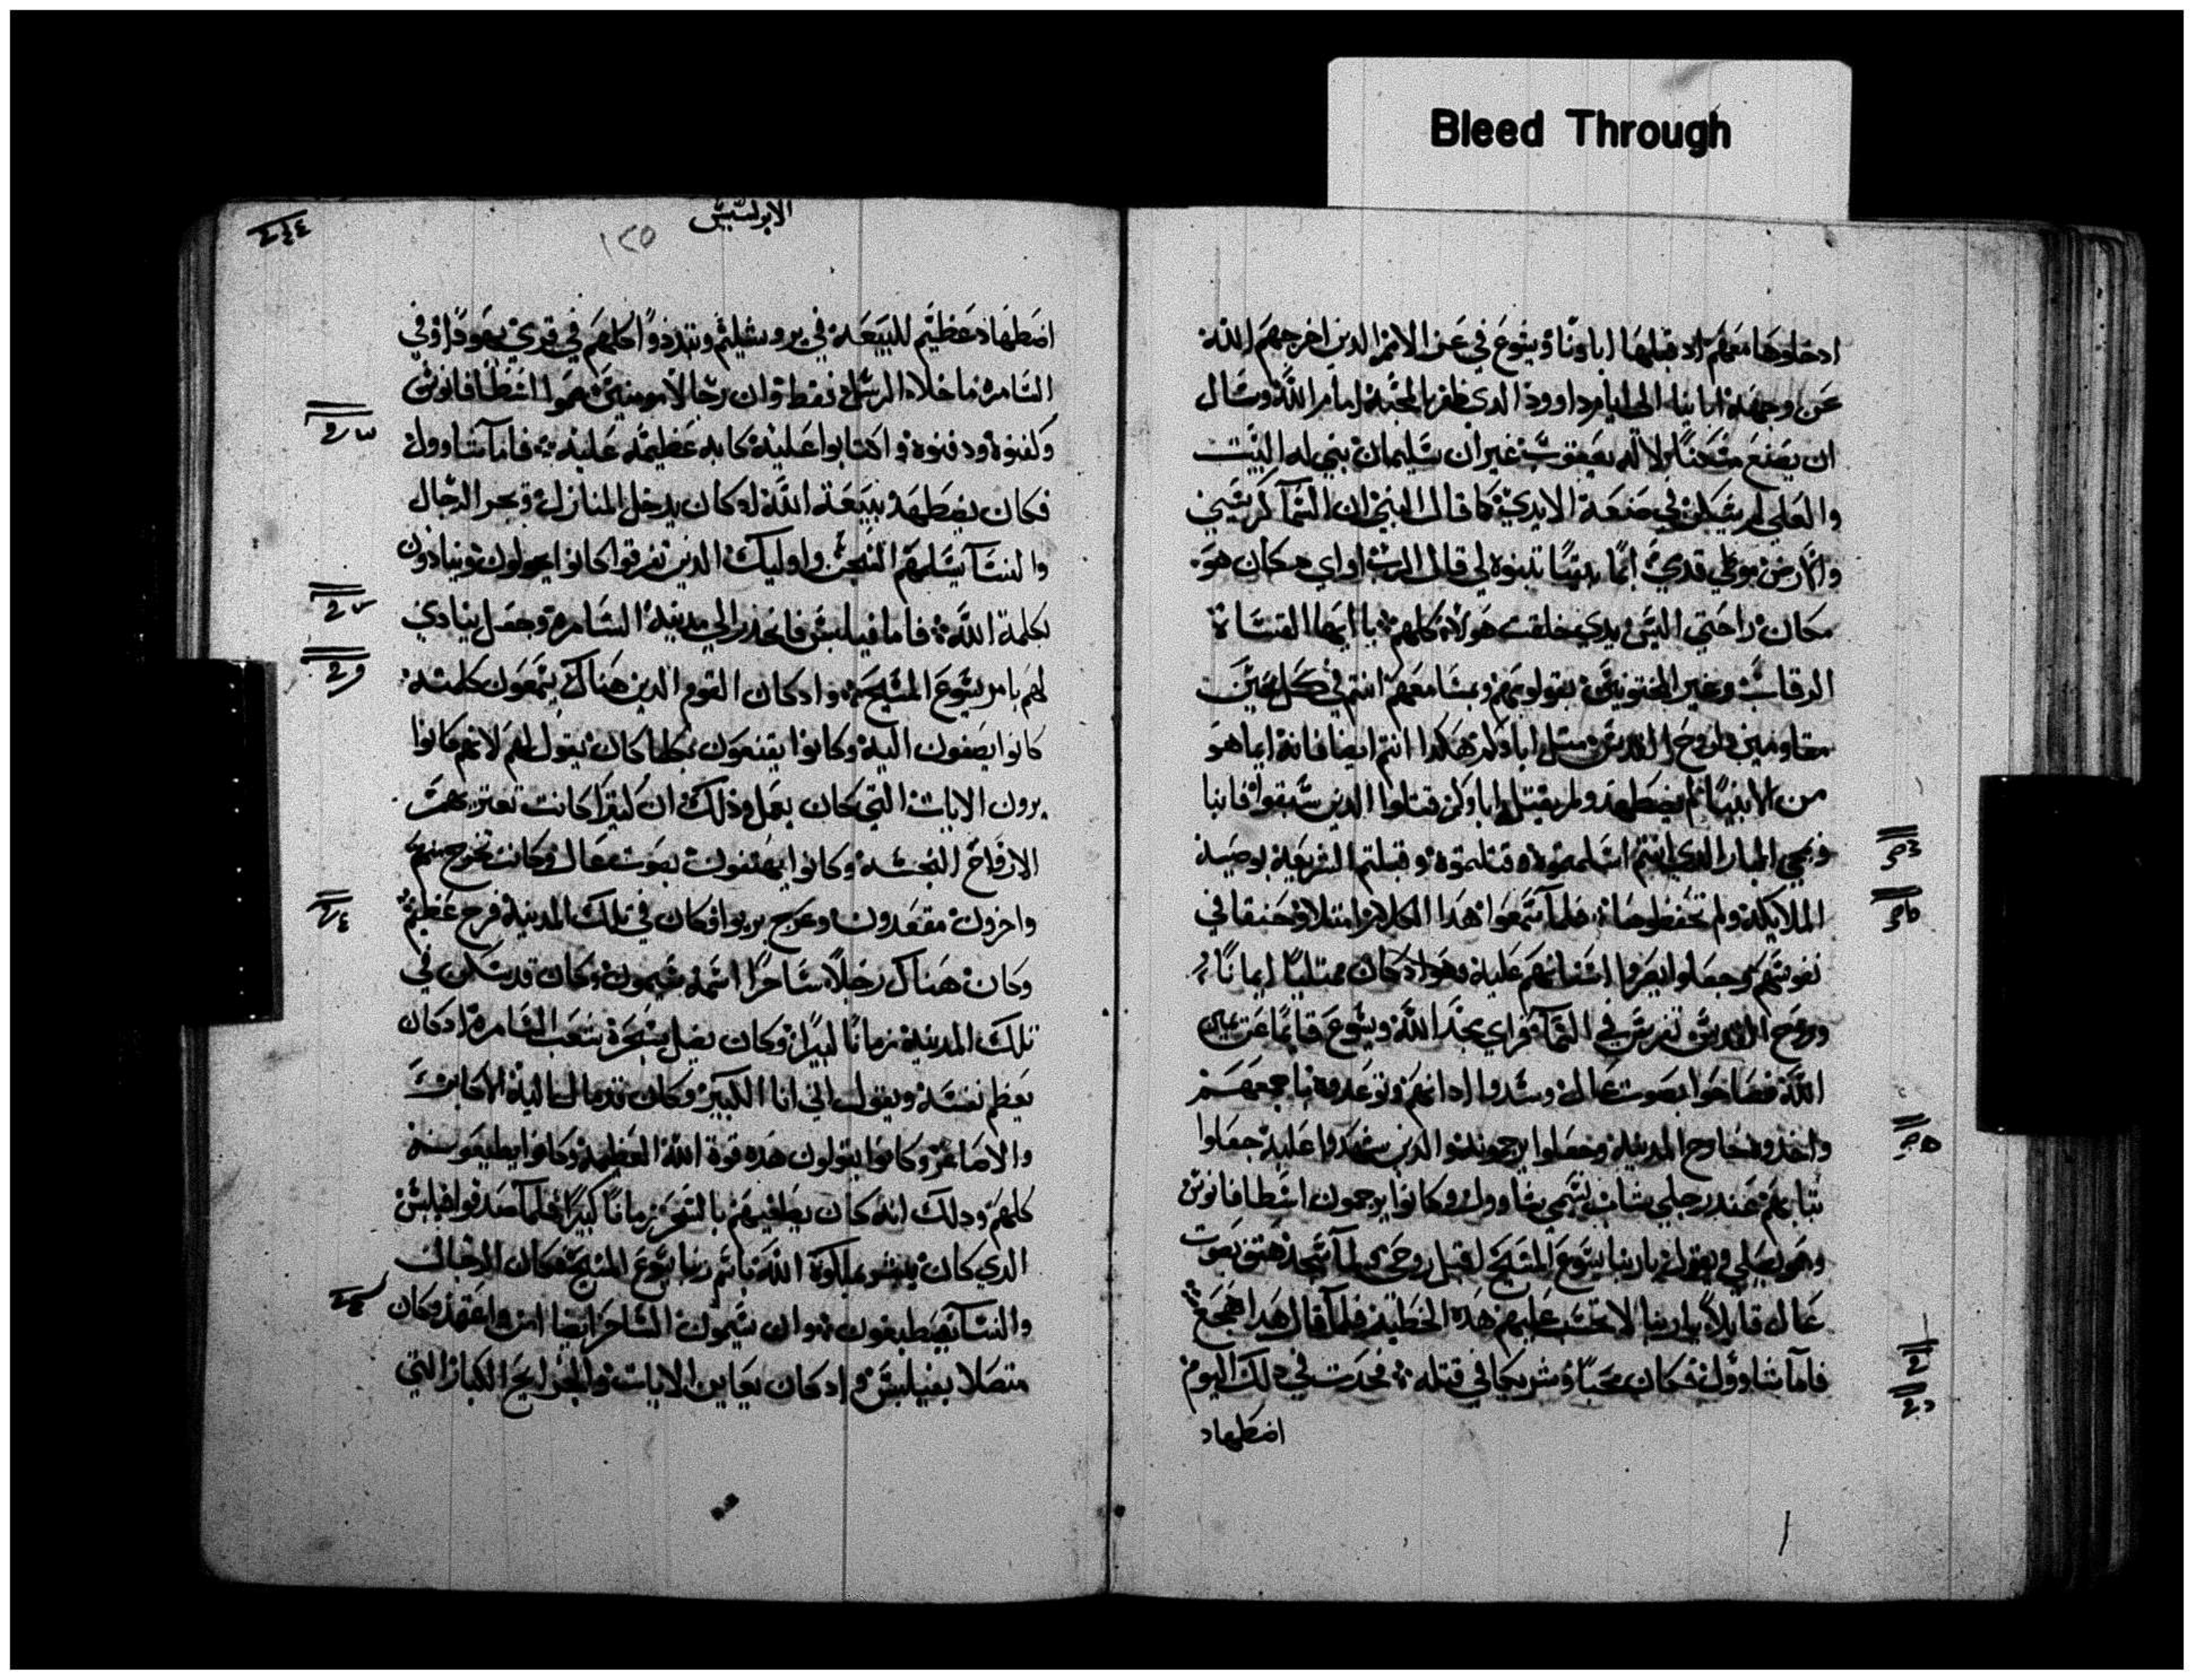 Bleed Through
ادخلوها معهم اد قبلها اباونا ويشوع في عز الامم الدين اخرجهم الله
عن وجهة ابا بنا الى ايام داوود الدي ظفر بالمحبة امام الله وسال
ان يصنع مسكنا لاله يعقوب غير ان سليمان بني له البيت
والعلي لم يسكن في صنعة الايدي كما قال النبي ان السما كرسيي
والارض موطي قدمي ايما بيتا تبنوه لي قال الرب او اي مكان هو
مكان راحتي اليس يدي خلقت هولاء كلهم يا ايها القساة
الرقاب وغير المختونين بقلوبهم وبمسامعهم انتم في كل حين
مقاومين لروح القدس مثل اباوكم هكدا انتم ايضا فانه ايما هو
من الانبيا لم يضطهد ولم يقتل اباوكم قتلوا الدين سبقوا فانبا
وبمجي البار الدي انتم اسلمتموه وقتلتموه وقبلتم الشريعة بوصية
الملايكة ولم تحفظوها فلما سمعوا هدا الكلام امتلاو حنقا في
نفوسهم وجعلوا يصروا اسنانهم عليه وهو اد كان ممتليا ايمانا
وروح القدس تفرس في السما فراي مجد الله ويسوع قايما عن يمين
الله فصاحوا بصوت عال وسدوا ادانهم وتوعدوه باجمعهم
واخدوه خارج المدينة وجعلوا يرجمونه والدين شهدوا عليه جعلوا
ثيابهم عند رجلي شاب يسمي شاوول وكانوا يرجمون اسطافانوس
وهو يصلي ويقول يا ربنا يسوع المسيح اقبل روحي لما سجد هتف بصوت
عال قايلا يا ربنا لا تحسب عليهم هده الخطية فلما قال هدا هجع
فاما شاوول فكان محبا وشريكا في قتله فحدت في دلك اليوم
اضطهاد
الابركسيس
١٢٥
اضطهاد عظيم للبيعة في يروشليم وتبددوا كلهم في قري يهودا وفي
السامرة ما خلا الرسل فقط وان رجالا مومنين حموا اسطافانوس
وكفنوه ودفنوه واكتابوا عليه كابه عظيمة عليه فاما شاوول
فكان يضطهد ببيعة الله اد كان يدخل المنازل ويجر الرجال
والنسا يسلمهم السجن واوليك الدين تفرقوا كانوا يجولون وينادون
بكلمة الله فاما فيلبس فانحدر الي مدينة السامرة وجعل ينادي
لهم بامر يسوع المسيح واد كان القوم الدين هناك يسمعون كلمته
كانوا يصغون اليه وكانوا يقنعون بكلما كان يقول لهم لانهم كانوا
يرون الايات التي كان يعمل ودلك ان كثيرا كانت تعتريهم
الارواح النجسة وكانوا يهتفون بصوت عال وكانت تخرج منهم
واخرون مقعدون وعرج بريوا فكان في تلك المدينة فرح عظيم
وكان هناك رجلا ساحرا اسمه سيمون وكان قد سكن في
تلك المدينة زمانا كبيرا وكان يضل بسحره شعب السامرة اد كان
يعظم نفسه ويقول اني انا الكبير وكان قد مال اليه الاكابر
والاصاغر وكانوا يقولون هده قوة الله العظيمة وكانوا يطيعوسه
كلهم ودلك انه كان يطغيهم بالسحر زمانا كبيرا فلما صدقوا فيلبس
الدي كان يبشر بملكوت الله باسم ربنا يسوع المسيح فكان الرجال
والنسا يصطبغون وان سيمون الساحر ايضا امن واعتمد وكان
متصلا بفيلبس واد كان يعاين الايات والجرايح الكبار التي